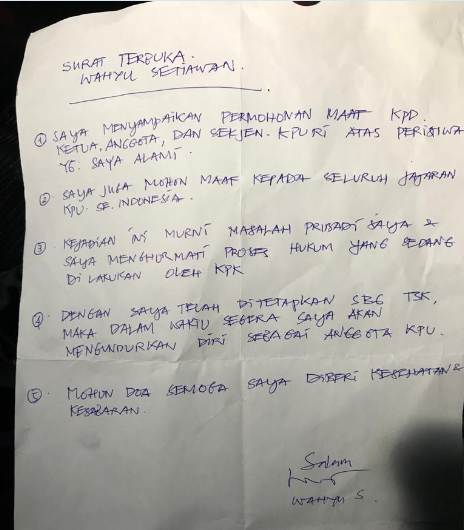 SURAT TERBUKA.
WAHYU SETIAWAN.
① SAYA MENYAMPAIKAN PERMOHONAN MAAF KPD.
KETUA, ANGGOTA, DAN SEKJEN. KPU RI ATAS PERISTIWA
YG. SAYA ALAMI.
② SAYA JUGA MOHON MAAF KEPADA SELURUH JAJARAN
KPU. SE. INDONESIA.
③ KEJADIAN INI MURNI MASALAH PRIBADI SAYA &
SAYA MENGHORMATI PROSES HUKUM YANG SEDANG
DI LAKUKAN OLEH KPK
④ DENGAN SAYA TELAH DITETAPKAN SBG TSK,
MAKA DALAM WAKTU SEGERA SAYA AKAN
MENGUNDURKAN DIRI SEBAGAI ANGGOTA KPU.
⑤ MOHON DOA SEMOGA SAYA DIBERI KESEHATAN &
KESABARAN.
Salam
WAHYU S.